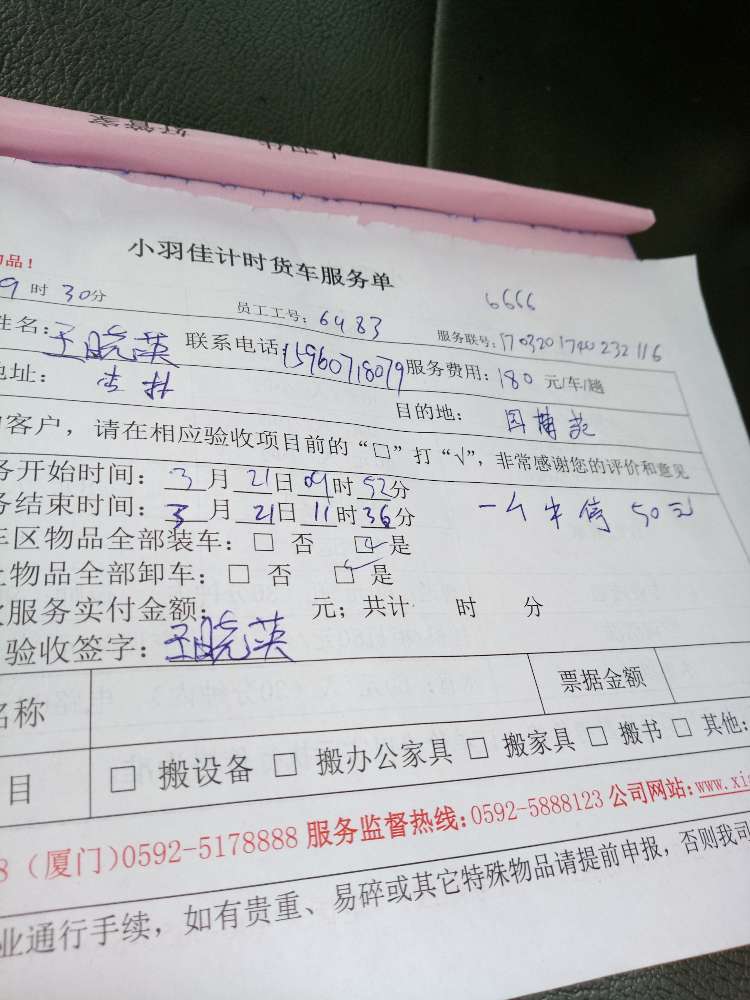 好管家
小羽佳计时货车服务单
6666
物品!
9时30分 员工工号:6483 服务联号:1703201740232116
姓名:王晓英 联系电话:15960718079 服务费用:180元/车/趟
地址:杏林 目的地:
客户,请在相应验收项目前的“□”打“√”,非常感谢您的评价和意见
务开始时间:3月21日09时52分
务结束时间:3月21日11时36分 50元
车区物品全部装车:□ 否 ☑ 是
物品全部卸车:□ 否 ☑ 是
服务实付金额: 元;共计 时 分
验收签字:王晓英
名称 票据金额
目 □ 搬设备 □ 搬办公家具 □ 搬家具 □ 搬书 □ 其他:
8(厦门)0592-5178888 服务监督热线:0592-5888123 公司网站:www.xi
业通行手续,如有贵重、易碎或其它特殊物品请提前申报,否则我司